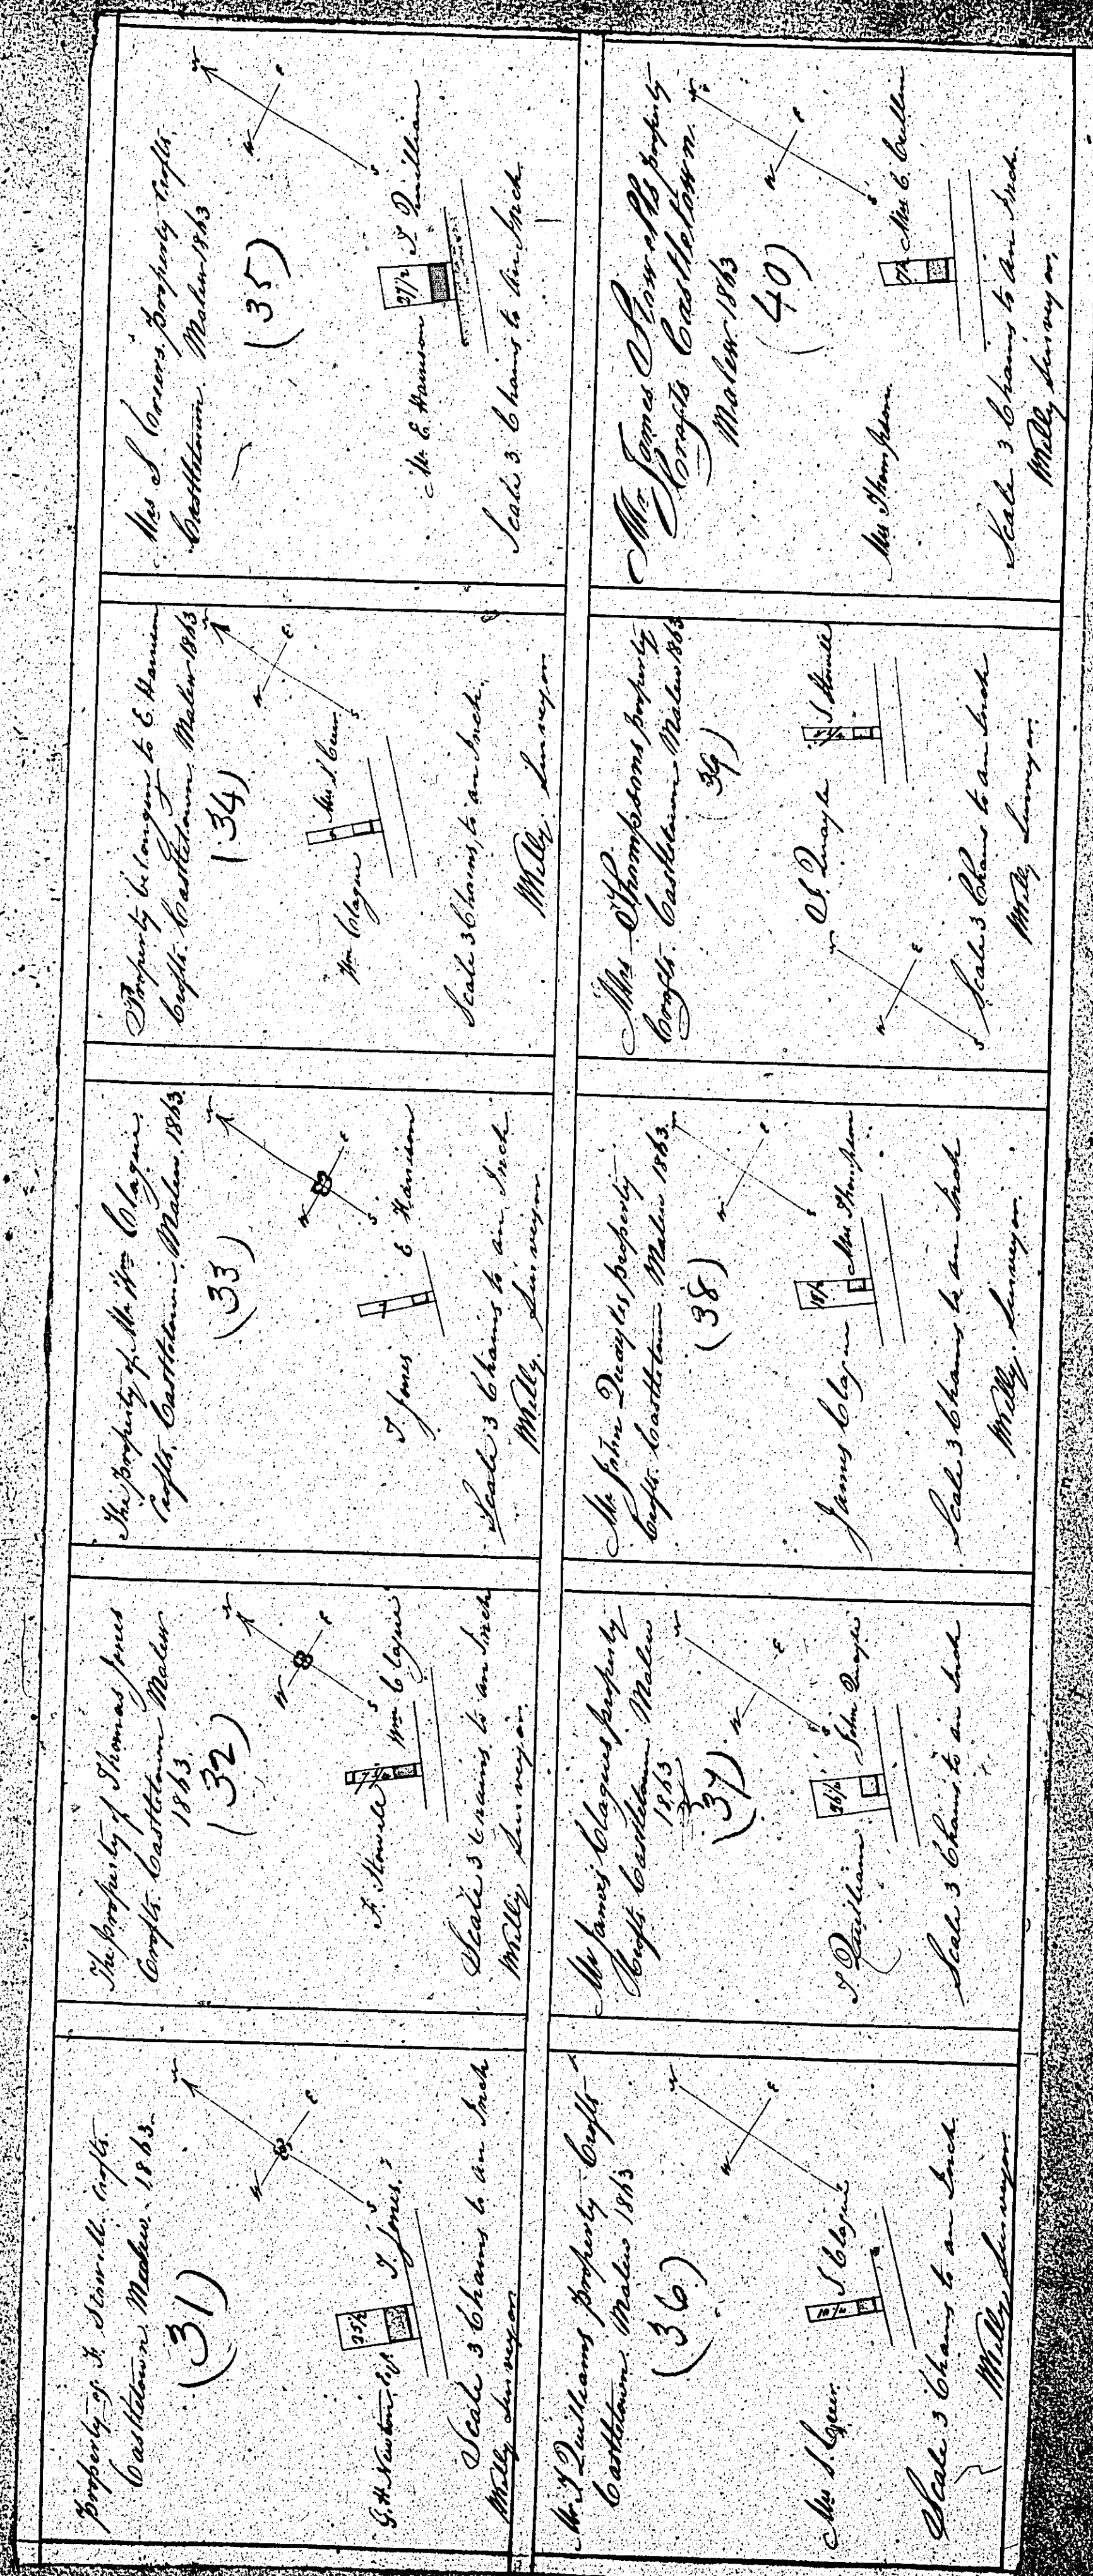 Property of F. Stowell Crofts
Castletown Malew 1863
(31)
N
W
E
S
G. H. Newton Esqr
25½
T. Jones
Scale 3 Chains to an Inch
Milly Surveyor
The property of Thomas Jones
Crofts Castletown Malew
1863
(32)
N
W
E
S
F. Stowell
Wm Clague
Scale 3 Chains to an Inch
Milly Surveyor
The property of Mr Wm Clague
Crofts Castletown Malew 1863
(33)
N
W
E
S
T Jones
7
E Harrison
Scale 3 Chains to an Inch
Milly Surveyor
Property belonging to E. Harrison
Crofts Castletown Malew 1863
(34)
N
W
E
S
Wm Clague
Mrs S Creer
Scale 3 Chains to an Inch
Milly Surveyor
Mrs S. Creers property Crofts
Castletown Malew 1863
(35)
N
W
E
S
Mr E Harrison
27½
T Quilliam
Scale 3 Chains to an Inch
Mr T Quilliams property Crofts
Castletown Malew 1863
(36)
N
W
E
Mrs S. Creer
J Clague
Scale 3 Chains to an Inch
Milly Surveyor
Mr James Clagues property
Crofts Castletown Malew
1863
(37)
N
W
E
S
T Quilliam
John Quayle
Scale 3 Chains to an Inch
Mr John Quayles property
Crofts Castletown Malew 1863
(38)
N
W
E
S
James Clague
Mrs Thompson
Scale 3 Chains to an Inch
Milly Surveyor
Mrs Thompsons property
Crofts Castletown Malew 1863
(39)
N
W
E
S
J. Quayle
J. Stowell
Scale 3 Chains to an Inch
Milly Surveyor
Mr James Stowells property
Crofts Castletown
Malew 1863
(40)
N
W
E
S
Mrs Thompson
Mrs C. Cullen
Scale 3 Chains to an Inch
Milly Surveyor